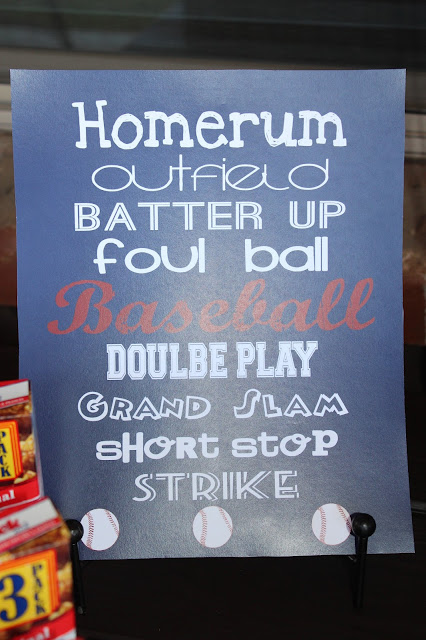 Homerum
outfield
BATTER UP
foul ball
Baseball
DOULBE PLAY
GRAND SLAM
short stop
STRIKE
PACK
3 PACK